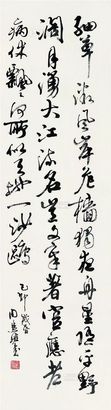 細草微風岸危檣獨夜舟星垂平野
闊月湧大江流名豈文章著官應老
病休飄々何所似天地一沙鷗
乙卯
周慧珺書